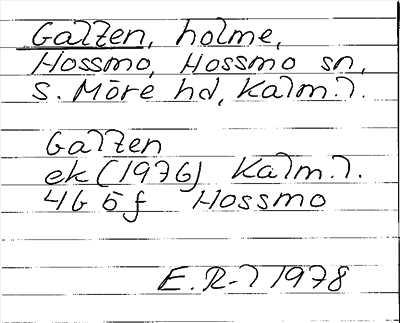 Galten, holme,
Hossmo, Hossmo sn,
S. Möre hd, Kalm. l.
Galten
ek (1976) Kalm. l.
4G 5 f Hossmo
E. R-l 1978